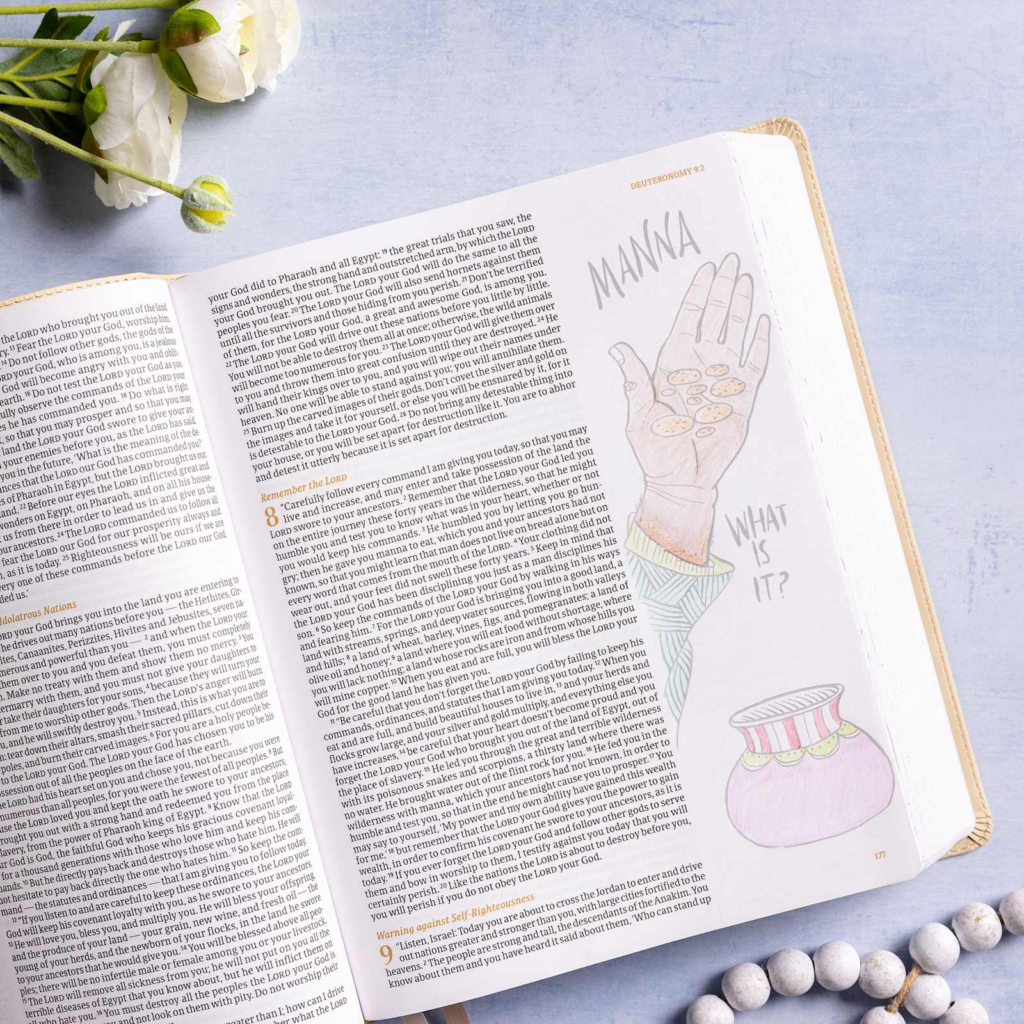 the LORD who brought you out of the land
Fear the LORD your God, worship him,
Do not follow other gods, the gods of the
God, who is among you, is a jealous
God will become angry with you and oblit-
earth. Do not test the LORD your God as you
fully observe the commands of the LORD your
he has commanded you. Do what is right
so that you may prosper and so that you may
land the LORD your God swore to give your an-
your enemies before you, as the LORD has said.
you in the future, 'What is the meaning of the de-
ances that the LORD our God has commanded you?'
of Pharaoh in Egypt, but the LORD brought us out
Before our eyes the LORD inflicted great and
wonders on Egypt, on Pharaoh, and on all his house-
us from there in order to lead us in and give us the
our ancestors. The LORD commanded us to follow all
fear the LORD our God for our prosperity always and
as it is today. Righteousness will be ours if we are
every one of these commands before the LORD our God,
ded us.'
Idolatrous Nations
LORD your God brings you into the land you are entering to
he drives out many nations before you — the Hethites, Gir-
ites, Canaanites, Perizzites, Hivites and Jebusites, seven na-
merous and powerful than you — 2 and when the LORD
them over to you and you defeat them, you must completely
Make no treaty with them and show them no mercy. 3 You
marry with them, and you must not give your daughters to
take their daughters for your sons, 4 because they will turn your
from me to worship other gods. Then the LORD's anger will burn
and he will swiftly destroy you. 5 Instead, this is what you are
tear down their altars, smash their sacred pillars, cut down their
poles, and burn their carved images. 6 For you are a holy people be-
to the LORD your God. The LORD your God has chosen you to be his
ossession out of all the peoples on the face of the earth.
LORD had his heart set on you and chose you, not because you were
numerous than all peoples, for you were the fewest of all peoples. 8 But
use the LORD loved you and kept the oath he swore to your ancestors,
rought you out with a strong hand and redeemed you from the place
slavery, from the power of Pharaoh king of Egypt. 9 Know that the LORD
ur God is God, the faithful God who keeps his gracious covenant loyal-
for a thousand generations with those who love him and keep his com-
mands. 10 But he directly pays back and destroys those who hate him. He will
not hesitate to pay back directly the one who hates him. 11 So keep the com-
mand — the statutes and ordinances — that I am giving you to follow today.
12 "If you listen to and are careful to keep these ordinances, the LORD your
God will keep his covenant loyalty with you, as he swore to your ancestors.
13 He will love you, bless you, and multiply you. He will bless your offspring,
and the produce of your land — your grain, new wine, and fresh oil — the
young of your herds, and the newborn of your flocks, in the land he swore
to your ancestors that he would give you. 14 You will be blessed above all peo-
ples; there will be no infertile male or female among you or your livestock.
15 The LORD will remove all sickness from you; he will not put on you all the
terrible diseases of Egypt that you know about, but he will inflict them on
all who hate you. 16 You must destroy all the peoples the LORD your God is
and not look on them with pity. Do not worship their
greater than I; how can I drive
what the LORD
DEUTERONOMY 9:2
your God did to Pharaoh and all Egypt: 19 the great trials that you saw, the
signs and wonders, the strong hand and outstretched arm, by which the LORD
your God brought you out. The LORD your God will do the same to all the
peoples you fear. 20 The LORD your God will also send hornets against them
until all the survivors and those hiding from you perish. 21 Don't be terrified
of them, for the LORD your God, a great and awesome God, is among you.
22 The LORD your God will drive out these nations before you little by little.
You will not be able to destroy them all at once; otherwise, the wild animals
will become too numerous for you. 23 The LORD your God will give them over
to you and throw them into great confusion until they are destroyed. 24 He
will hand their kings over to you, and you will wipe out their names under
heaven. No one will be able to stand against you; you will annihilate them.
25 Burn up the carved images of their gods. Don't covet the silver and gold on
the images and take it for yourself, or else you will be ensnared by it, for it
is detestable to the LORD your God. 26 Do not bring any detestable thing into
your house, or you will be set apart for destruction like it. You are to abhor
and detest it utterly because it is set apart for destruction.
Remember the LORD
8 "Carefully follow every command I am giving you today, so that you may
live and increase, and may enter and take possession of the land the
LORD swore to your ancestors. 2 Remember that the LORD your God led you
on the entire journey these forty years in the wilderness, so that he might
humble you and test you to know what was in your heart, whether or not
you would keep his commands. 3 He humbled you by letting you go hun-
gry; then he gave you manna to eat, which you and your ancestors had not
known, so that you might learn that man does not live on bread alone but on
every word that comes from the mouth of the LORD. 4 Your clothing did not
wear out, and your feet did not swell these forty years. 5 Keep in mind that
the LORD your God has been disciplining you just as a man disciplines his
son. 6 So keep the commands of the LORD your God by walking in his ways
and fearing him. 7 For the LORD your God is bringing you into a good land, a
land with streams, springs, and deep water sources, flowing in both valleys
and hills; 8 a land of wheat, barley, vines, figs, and pomegranates; a land of
olive oil and honey; 9 a land where you will eat food without shortage, where
you will lack nothing; a land whose rocks are iron and from whose hills you
will mine copper. 10 When you eat and are full, you will bless the LORD your
God for the good land he has given you.
11 "Be careful that you don't forget the LORD your God by failing to keep his
commands, ordinances, and statutes that I am giving you today. 12 When you
eat and are full, and build beautiful houses to live in, 13 and your herds and
flocks grow large, and your silver and gold multiply, and everything else you
have increases, 14 be careful that your heart doesn't become proud and you
forget the LORD your God who brought you out of the land of Egypt, out of
the place of slavery. 15 He led you through the great and terrible wilderness
with its poisonous snakes and scorpions, a thirsty land where there was
no water. He brought water out of the flint rock for you. 16 He fed you in the
wilderness with manna, which your ancestors had not known, in order to
humble and test you, so that in the end he might cause you to prosper. 17 You
may say to yourself, 'My power and my own ability have gained this wealth
for me,' 18 but remember that the LORD your God gives you the power to gain
wealth, in order to confirm his covenant he swore to your ancestors, as it is
today. 19 If you ever forget the LORD your God and follow other gods to serve
them and bow in worship to them, I testify against you today that you will
certainly perish. 20 Like the nations the LORD is about to destroy before you,
you will perish if you do not obey the LORD your God.
Warning against Self-Righteousness
9 "Listen, Israel: Today you are about to cross the Jordan to enter and drive
out nations greater and stronger than you, with large cities fortified to the
heavens. 2 The people are strong and tall, the descendants of the Anakim. You
know about them and you have heard it said about them, 'Who can stand up
MANNA
WHAT
IS
IT?
177